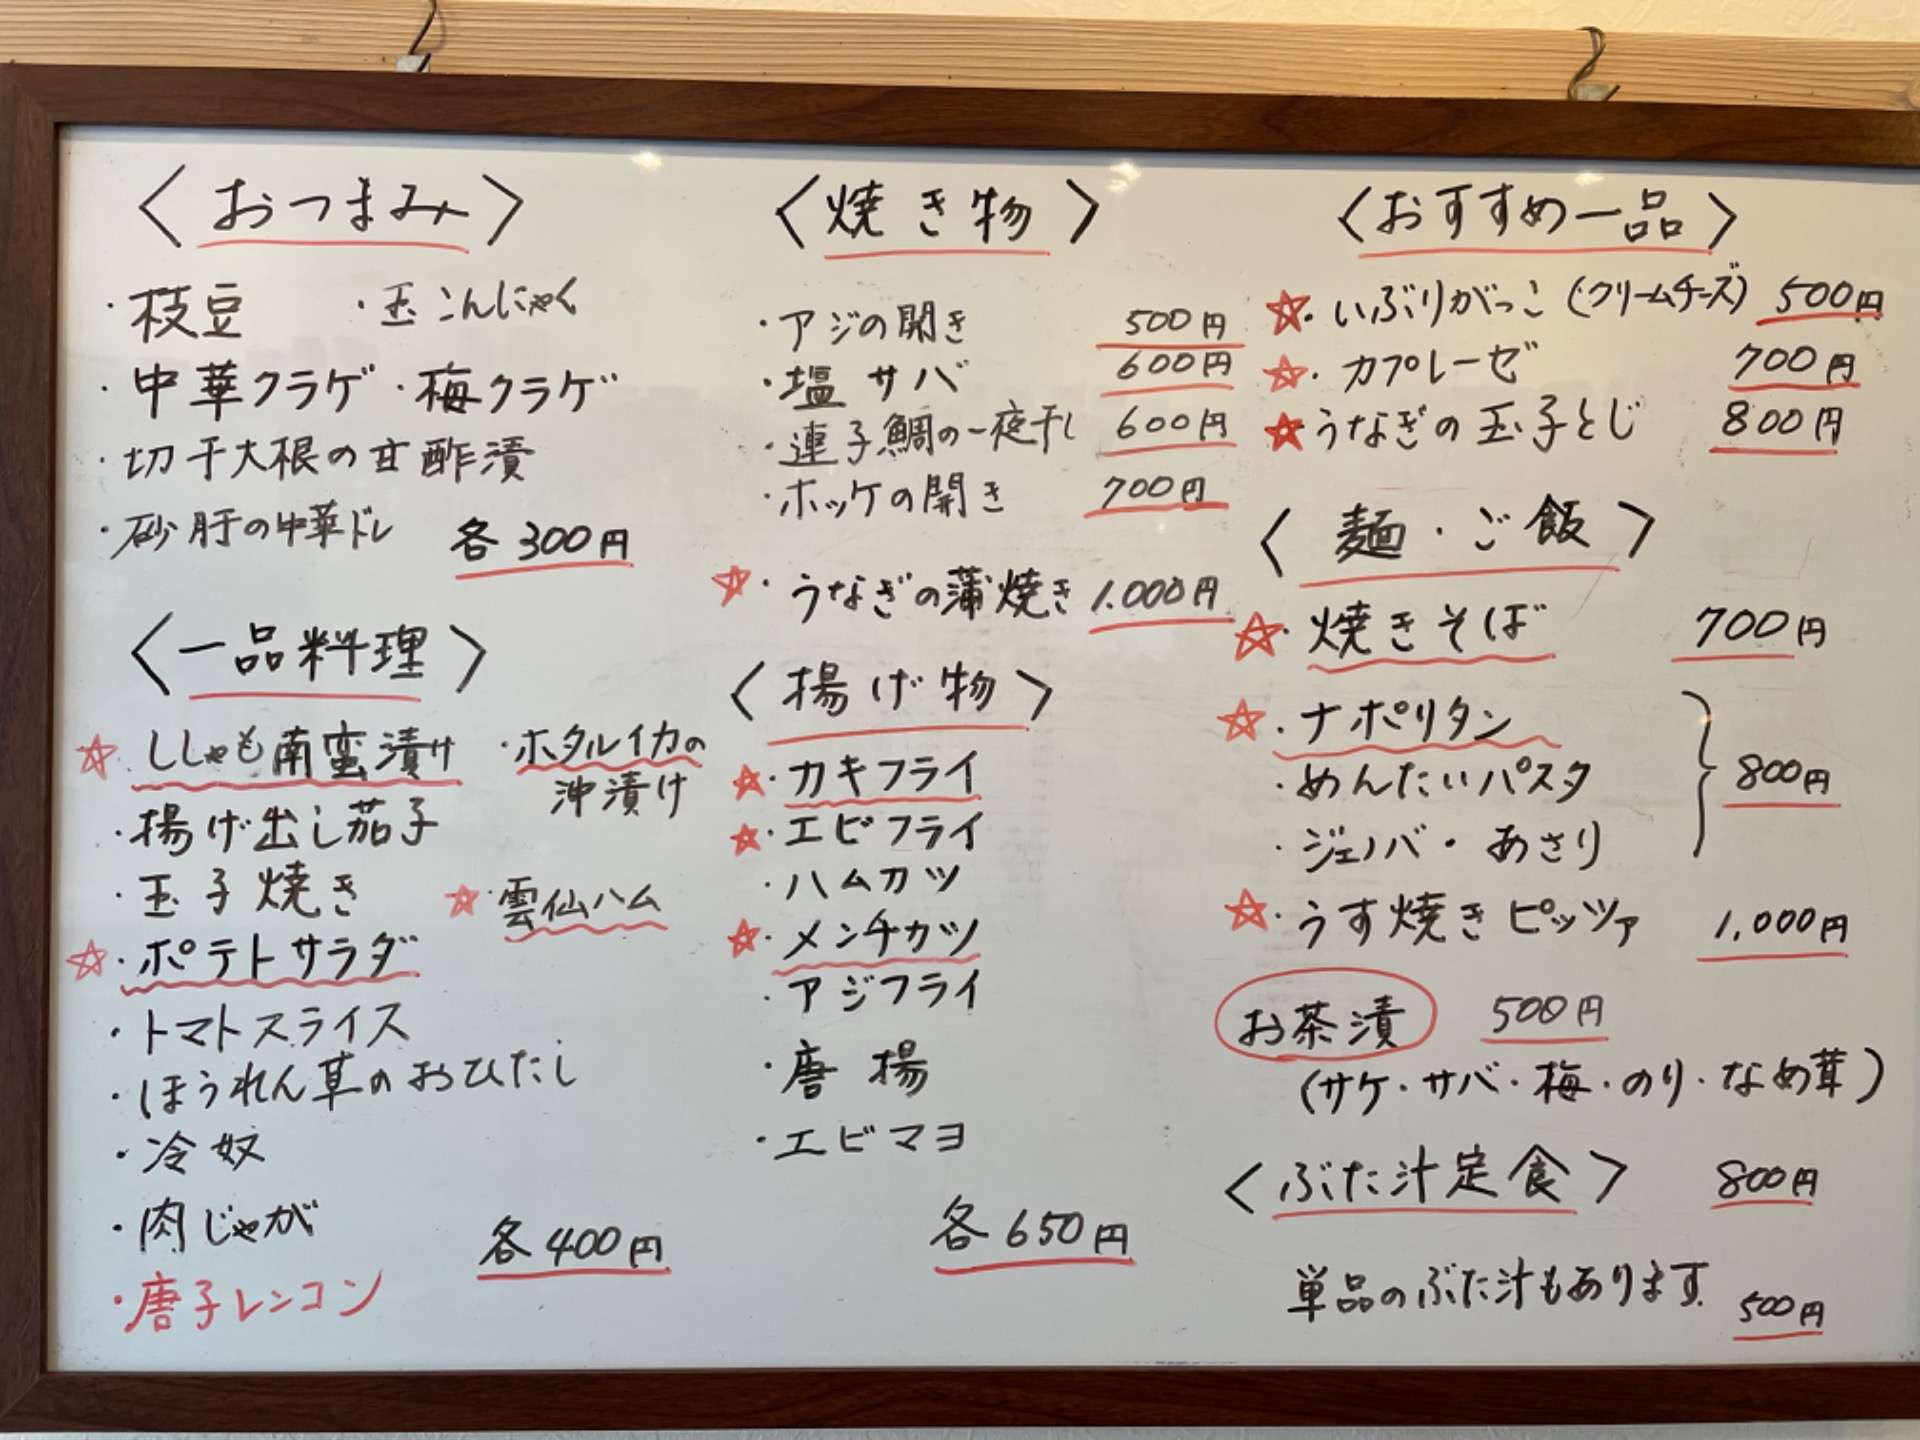 〈おつまみ〉
・枝豆 ・玉こんにゃく
・中華クラゲ・梅クラゲ
・切干大根の甘酢漬
・砂肝の中華ドレ 各300円
〈一品料理〉
☆ししゃも南蛮漬け ・ホタルイカの
沖漬け
・揚げ出し茄子
・玉子焼き ☆・雲仙ハム
☆・ポテトサラダ
・トマトスライス
・ほうれん草のおひたし
・冷奴
・肉じゃが 各400円
・唐子レンコン
〈焼き物〉
・アジの開き 500円
・塩サバ 600円
・連子鯛の一夜干し 600円
・ホッケの開き 700円
☆・うなぎの蒲焼き 1.000円
〈揚げ物〉
☆・カキフライ
☆・エビフライ
・ハムカツ
☆・メンチカツ
・アジフライ
・唐揚
・エビマヨ
各650円
〈おすすめ一品〉
☆・いぶりがっこ(クリームチーズ) 500円
☆・カプレーゼ 700円
☆うなぎの玉子とじ 800円
〈麺・ご飯〉
☆・焼きそば 700円
☆・ナポリタン
・めんたいパスタ 800円
・ジェノバ・あさり
☆・うす焼きピッツァ 1,000円
お茶漬 500円
(サケ・サバ・梅・のり・なめ茸)
〈ぶた汁定食〉 800円
単品のぶた汁もあります 500円